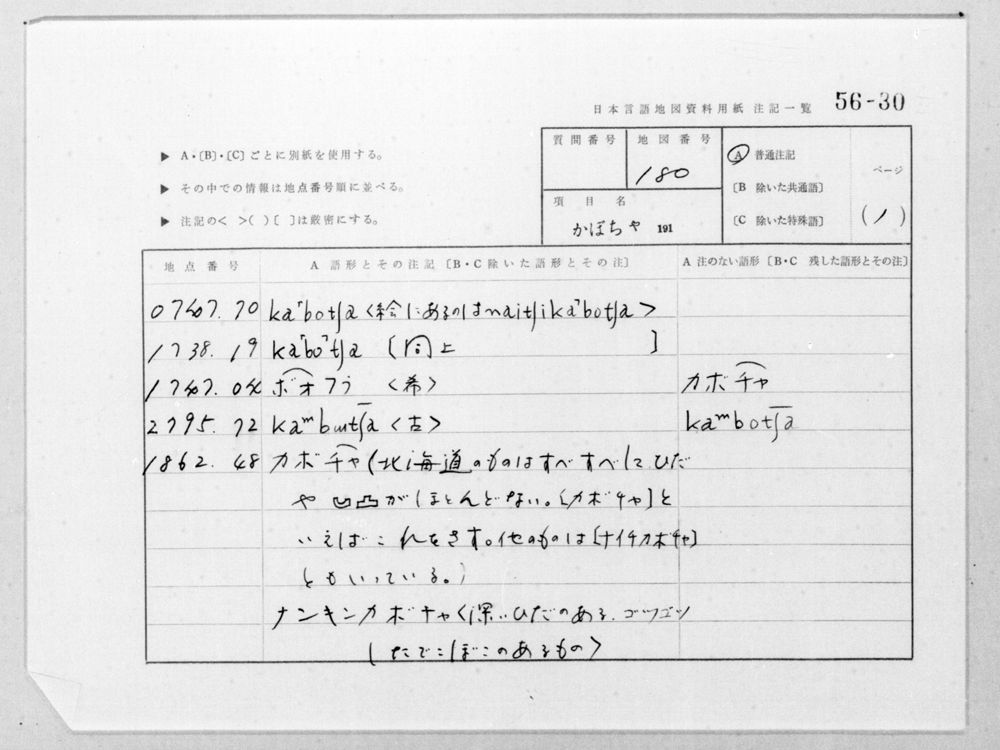 日本言語地図資料用紙 注記一覧 56-30
▶ A・〔B〕・〔C〕ごとに別紙を使用する。
▶ その中での情報は地点番号順に並べる。
▶ 注記の< >( )[ ]は厳密にする。
質問番号
地図番号
180
項目名
かぼちゃ 191
A 普通注記
〔B 除いた共通語〕
〔C 除いた特殊語〕
ページ
(1)
地点番号 A 語形とその注記〔B・C 除いた語形とその注〕 A 注のない語形〔B・C 残した語形とその注〕
0747.70 ka˥botʃa <絵にあるのはnaitʃika˥botʃa>
1738.19 ka˥bo˥tʃa [同上 ]
1747.04 ボオフラ <希> カボチャ
2795.72 kaᵐbɯtʃa <古> kaᵐbotʃa
1862.48 カボチャ(北海道のものはすべすべしてひだ
や凹凸がほとんどない。[カボチャ]と
いえばこれをさす。他のものは[ナイチカボチャ]
ともいっている。)
ナンキンカボチャ<深いひだのある、ゴツゴツ
したでこぼこのあるもの>